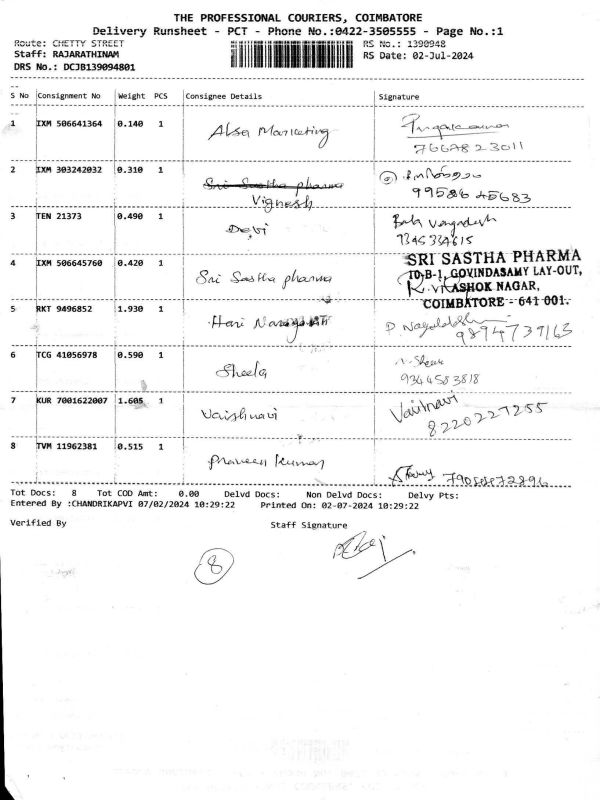 THE PROFESSIONAL COURIERS, COIMBATORE
Delivery Runsheet - PCT - Phone No.:0422-3505555 - Page No.:1
Route: CHETTY STREET RS No.: 1390948
Staff: RAJARATHINAM RS Date: 02-Jul-2024
DRS No.: DCJB139094801
S No Consignment No Weight PCS Consignee Details Signature
1 IXM 506641364 0.140 1 Aksa Marketing
2 IXM 303242032 0.310 1 Sri Sastha pharma
Vignesh
99586 45683
3 TEN 21373 0.490 1 Devi
9345334615
SRI SASTHA PHARMA
4 IXM 506645760 0.420 1 Sri Sastha pharma 10-B-1, GOVINDASAMY LAY-OUT,
ASHOK NAGAR,
COIMBATORE - 641 001.
5 RKT 9496852 1.930 1 Hari
9894739163
6 TCG 41056978 0.590 1 Sheela
9344583818
7 KUR 7001622007 1.605 1 Vaishnavi Vaishnavi
8220227255
8 TVM 11962381 0.515 1 Praveen kumar
Tot Docs: 8 Tot COD Amt: 0.00 Delvd Docs: Non Delvd Docs: Delvy Pts:
Entered By :CHANDRIKAPVI 07/02/2024 10:29:22 Printed On: 02-07-2024 10:29:22
Verified By Staff Signature
8